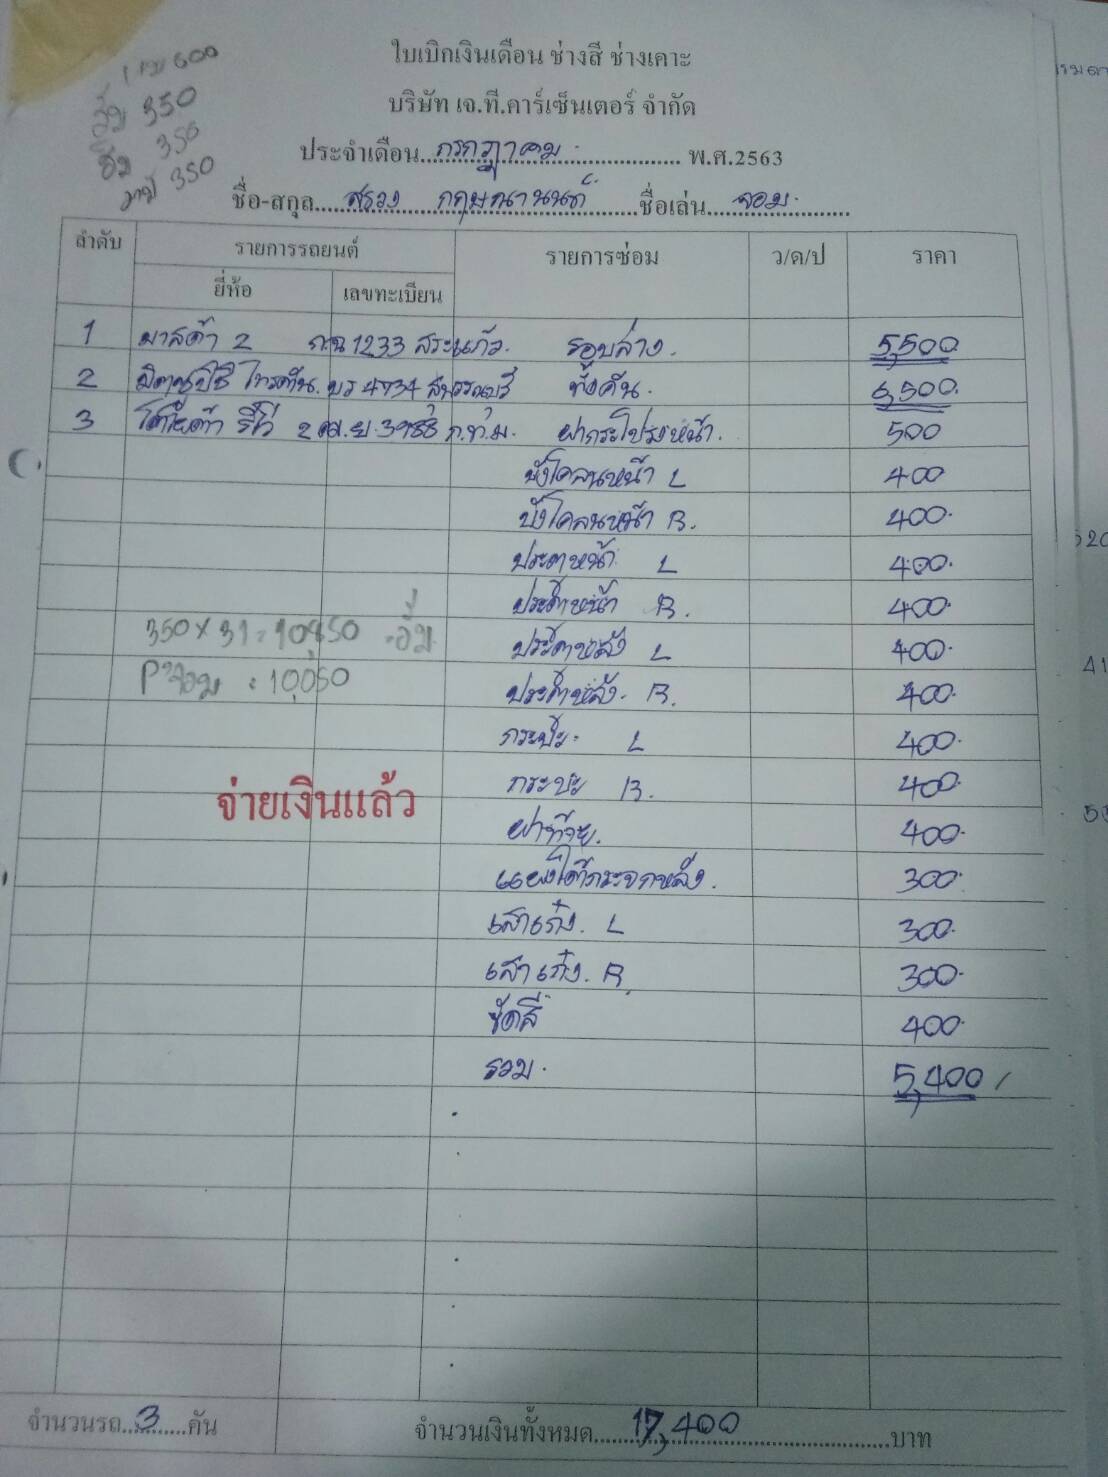 ใบเบิกเงินเดือน ช่างสี ช่างเคาะ
บริษัท เจ.ที.คาร์เซ็นเตอร์ จำกัด
ประจำเดือน กรกฎาคม พ.ศ.2563
ชื่อ-สกุล กฤษณานนท์ ชื่อเล่น จอม
600
อิ๋ม 350
350
350
ลำดับ รายการรถยนต์ รายการซ่อม ว/ด/ป ราคา
ยี่ห้อ เลขทะเบียน
1 มาสด้า 2 1233 สระแก้ว. รอบล่าง. 5,500
2 ไทรตัน. บร 4734 สุพรรณบุรี ทั้งคัน. 6,500.
3 โตโยต้า รีโว่ 3988 ก.ท.ม. ฝากระโปรงหน้า. 500
บังโคลนหน้า L 400
บังโคลนหน้า R. 400.
ประตูหน้า L 400.
ประตูหน้า R. 400.
350 x 31 = 10850 - อิ๋ม ประตูหลัง L 400.
P'จอม = 10,050 ประตูหลัง. R. 400.
กระบะ. L 400.
กระบะ R. 400.
จ่ายเงินแล้ว
ฝาท้าย. 400.
แผงใต้กระจกหลัง. 300.
เสาเก๋ง. L 300.
เสาเก๋ง. R. 300.
ขัดสี 400.
รวม. 5,400 /
จำนวนรถ 3 คัน จำนวนเงินทั้งหมด 17,400 บาท